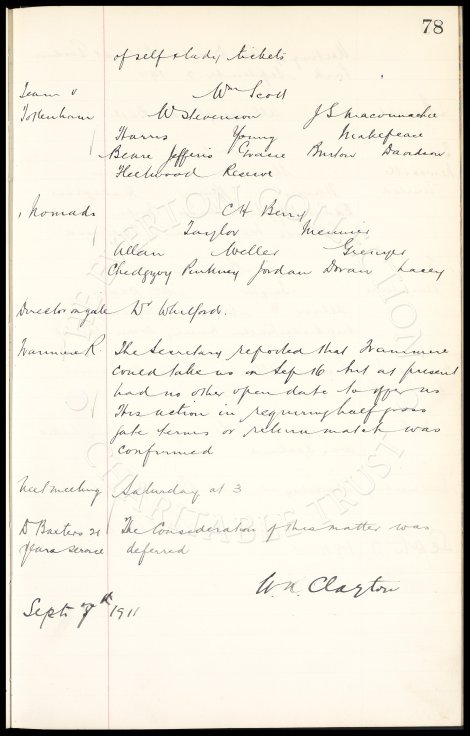 78
of self & lady tickets
Team v Wm Scott
Tottenham W Stevenson J S Maconnachie
Harris Young Makepeace
Beare Jefferis Gracie Burton Davidson
Fleetwood Reserve
Nomads C H Berry
Taylor Meunier
Allan Weller Grenyer
Chedgzoy Pinkney Jordan Doran Lacey
Director on gate Dr Whitford.
Tranmere R. The Secretary reported that Tranmere
could take us on Sep 16 but at present
had no other open date to offer us
His action in requiring half gross
gate terms or return match was
confirmed
Next meeting Saturday at 3
Dr Baxters 21 The Consideration of this matter was
years service deferred
W. R. Clayton
Sept 7th 1911
THE EVERTON COLLECTION
CHARITABLE TRUST